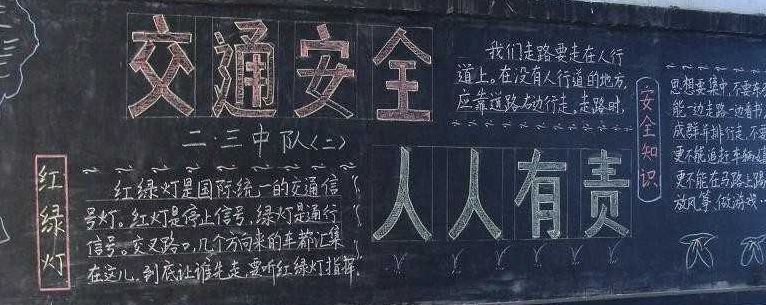 交通安全
二·三中队（二）
红绿灯
红绿灯是国际统一的交通信
号灯。红灯是停止信号，绿灯是通行
信号。交叉路口，几个方向来的车都汇集
在这儿，到底让谁先走，要听红绿灯指挥。
我们走路要走在人行
道上。在没有人行道的地方，
应靠道路右边行走。走路时，
人人有责
安全知识
思想要集中，不要东
能一边走路一边看书
成群并排行走，不
更不能追赶车辆
更不能在马路上踢
放风筝，做游戏…